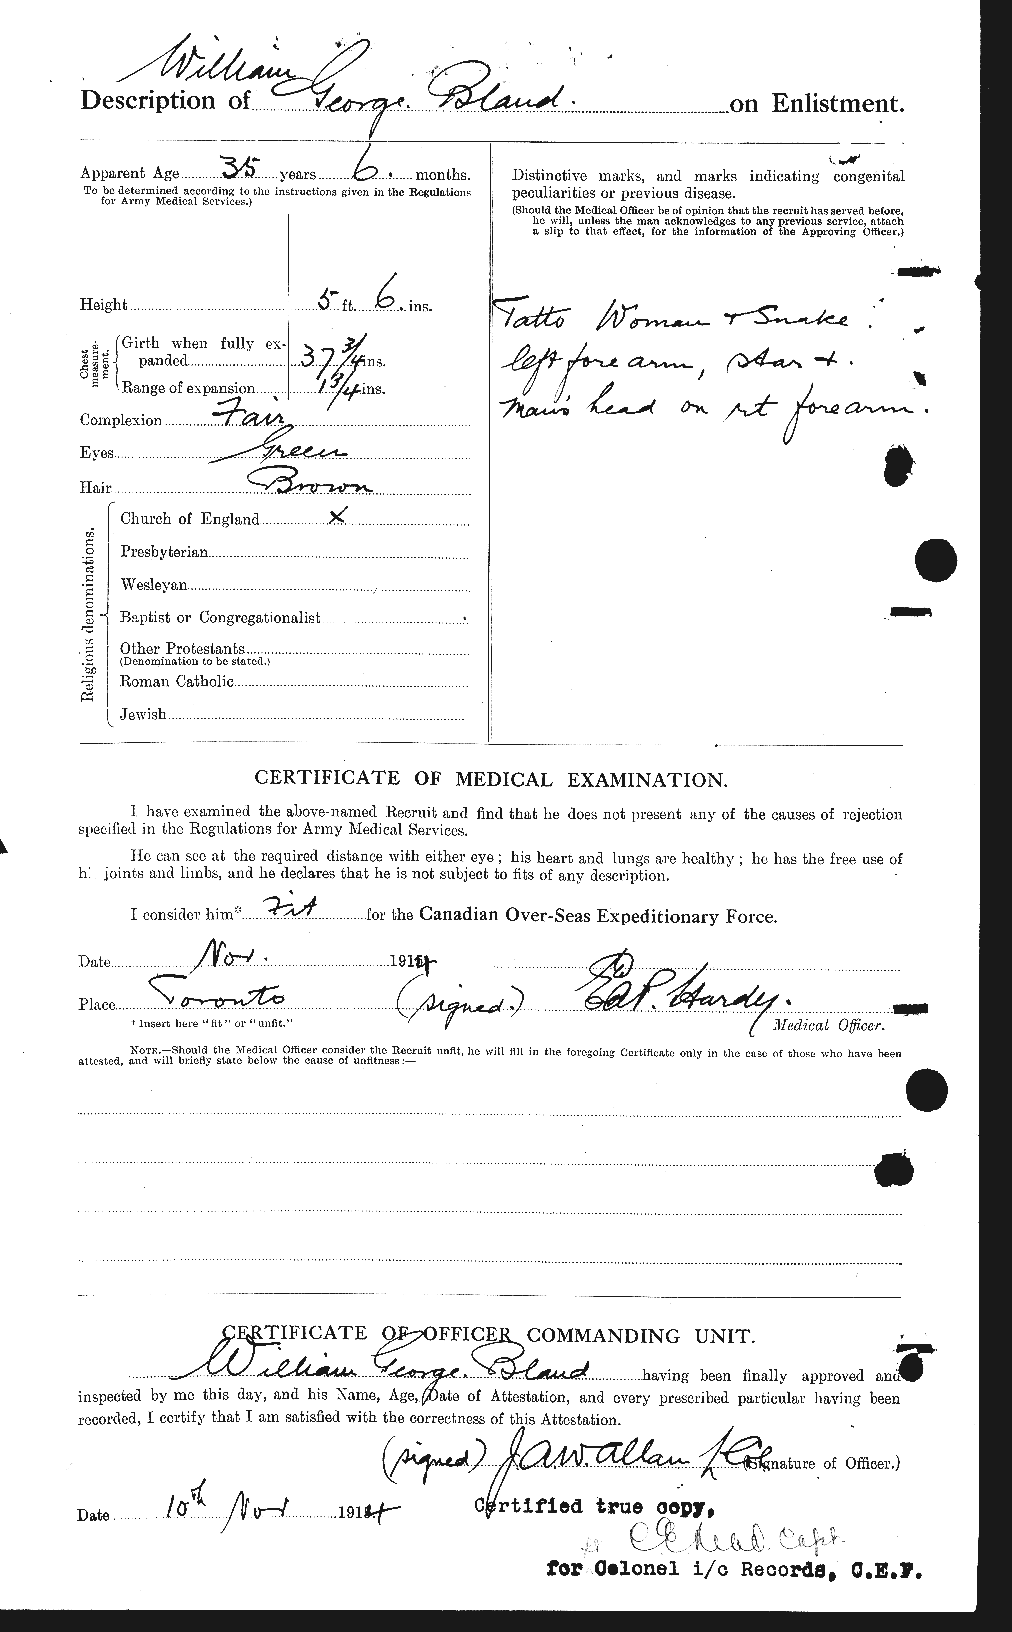 William
Description of George Bland. on Enlistment.
Apparent Age 35 years 6 months.
To be determined according to the instructions given in the Regulations
for Army Medical Services.)
Height 5 ft. 6 ins.
Chest measurement.
Girth when fully ex-
panded 37 3/4 ins.
Range of expansion 1 3/4 ins.
Complexion Fair
Eyes Green
Hair Brown
Religious denominations.
Church of England X
Presbyterian
Wesleyan
Baptist or Congregationalist
Other Protestants
(Denomination to be stated.)
Roman Catholic
Jewish
Distinctive marks, and marks indicating congenital
peculiarities or previous disease.
(Should the Medical Officer be of opinion that the recruit has served before,
he will, unless the man acknowledges to any previous service, attach
a slip to that effect, for the information of the Approving Officer.)
Tatto Woman + Snake
left forearm, star +
man's head on rt forearm.
CERTIFICATE OF MEDICAL EXAMINATION.
I have examined the above-named Recruit and find that he does not present any of the causes of rejection
specified in the Regulations for Army Medical Services.
He can see at the required distance with either eye; his heart and lungs are healthy; he has the free use of
hi joints and limbs, and he declares that he is not subject to fits of any description.
I consider him* Fit for the Canadian Over-Seas Expeditionary Force.
Date Nov. 1914
Place Toronto (signed.) Hardy.
Medical Officer.
* Insert here "fit" or "unfit."
NOTE.—Should the Medical Officer consider the Recruit unfit, he will fill in the foregoing Certificate only in the case of those who have been
attested, and will briefly state below the cause of unfitness:—
CERTIFICATE OF OFFICER COMMANDING UNIT.
William George Bland having been finally approved and
inspected by me this day, and his Name, Age, Date of Attestation, and every prescribed particular having been
recorded, I certify that I am satisfied with the correctness of this Attestation.
(signed) J A W. Allan (Signature of Officer.)
Date 10th Nov 1914
Certified true copy,
Capt.
for Colonel i/c Records, C.E.F.